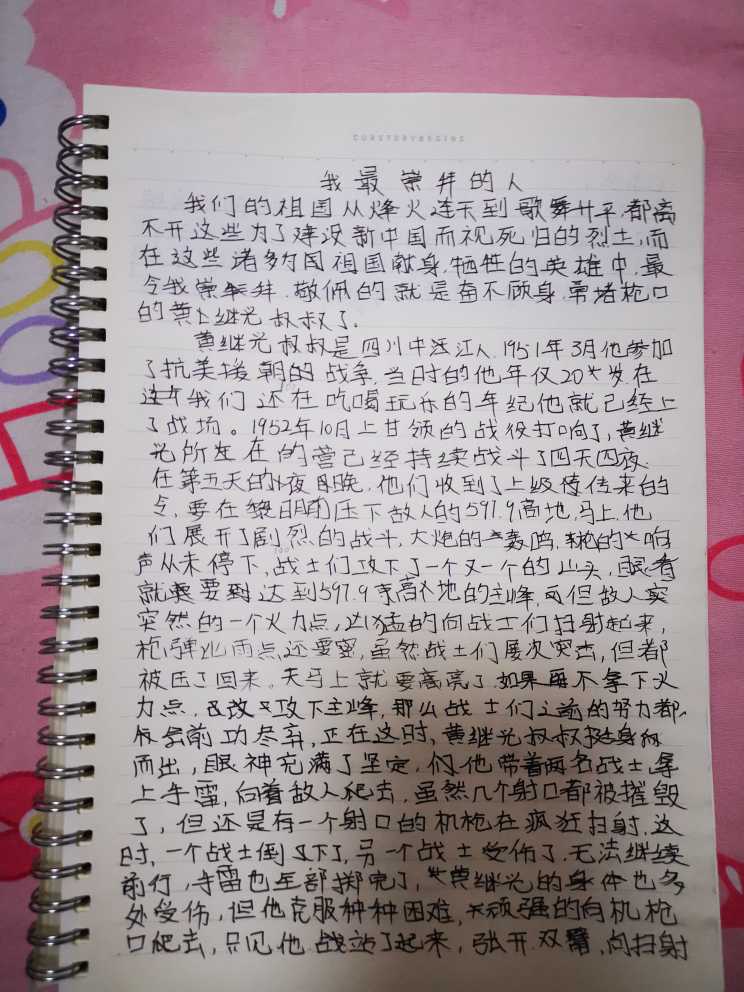 我最崇拜的人
我们的祖国从烽火连天到歌舞升平,都离
不开这些为了建设新中国而视死归的烈士,而
在这些诸多为国祖国献身,牺牲的英雄中,最
令我崇拜,敬佩的就是奋不顾身,勇堵枪口
的黄继光叔叔了。
黄继光叔叔是四川中江人,1951年3月他参加
了抗美援朝的战争,当时的他年仅20岁,在
我们还在吃喝玩乐的年纪他就已经上
了战场。1952年10月上甘领的战役打响了,黄继
光所在的营已经持续战斗了四天四夜.
在第五天的夜晚,他们收到了上级传来的
令,要在黎明前压下敌人的597.9高地,马上,他
们展开了剧烈的战斗,大炮的轰鸣,枪的响
声从未停下,战士们攻下了一个又一个的山头,眼看
就要到达到597.9高地的主峰,但敌人突
突然的一个火力点,凶猛的向战士们扫射起来,
枪弹比雨点还要密,虽然战士们屡次突击,但都
被压了回来。天马上就要亮了,如果再不拿下火
力点,攻下主峰,那么战士们之前的努力都
会前功尽弃,正在这时,黄继光叔叔挺身
而出,眼神充满了坚定,他带着两名战士,拿
上手雷,向着敌人爬去,虽然几个射口都被摧毁
了,但还是有一个射口的机枪在疯狂扫射,这
时,一个战士倒下了,另一个战士受伤了,无法继续
前行,手雷也全部掷完了,黄继光的身体也多
处受伤,但他克服种种困难,顽强的向机枪
口爬去,只见他战站了起来,张开双臂,向扫射